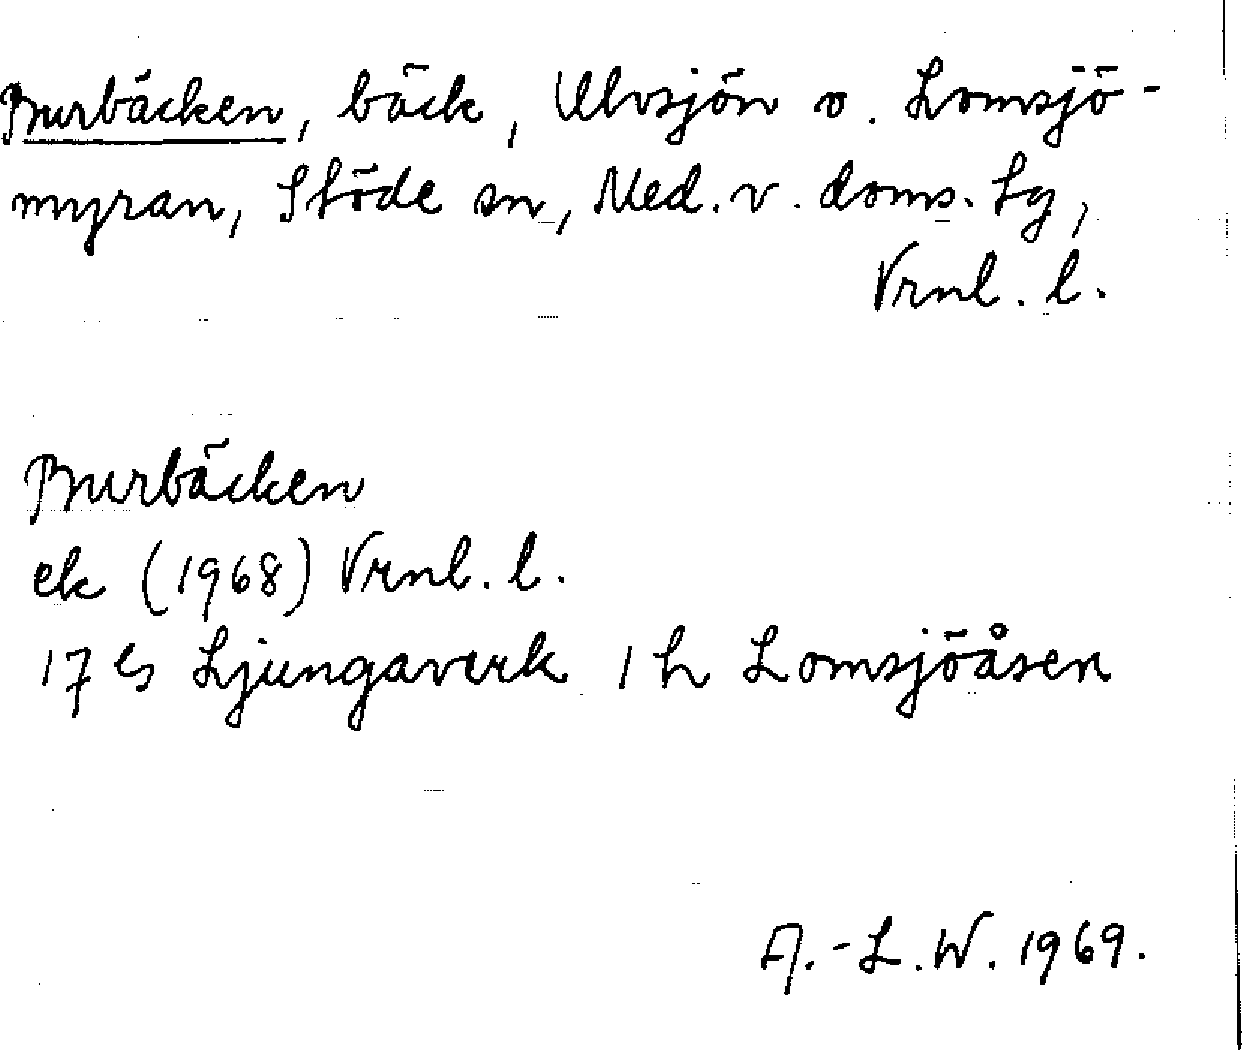 Burbäcken, bäck, Ulvsjön o. Lomsjö-
myran, Stöde sn, Med. v. doms. tg,
Vrnl. l.
Burbäcken
ek (1968) Vrnl. l.
17 Es Ljungaverk 1 h Lomsjöåsen
A.-L.W. 1969.